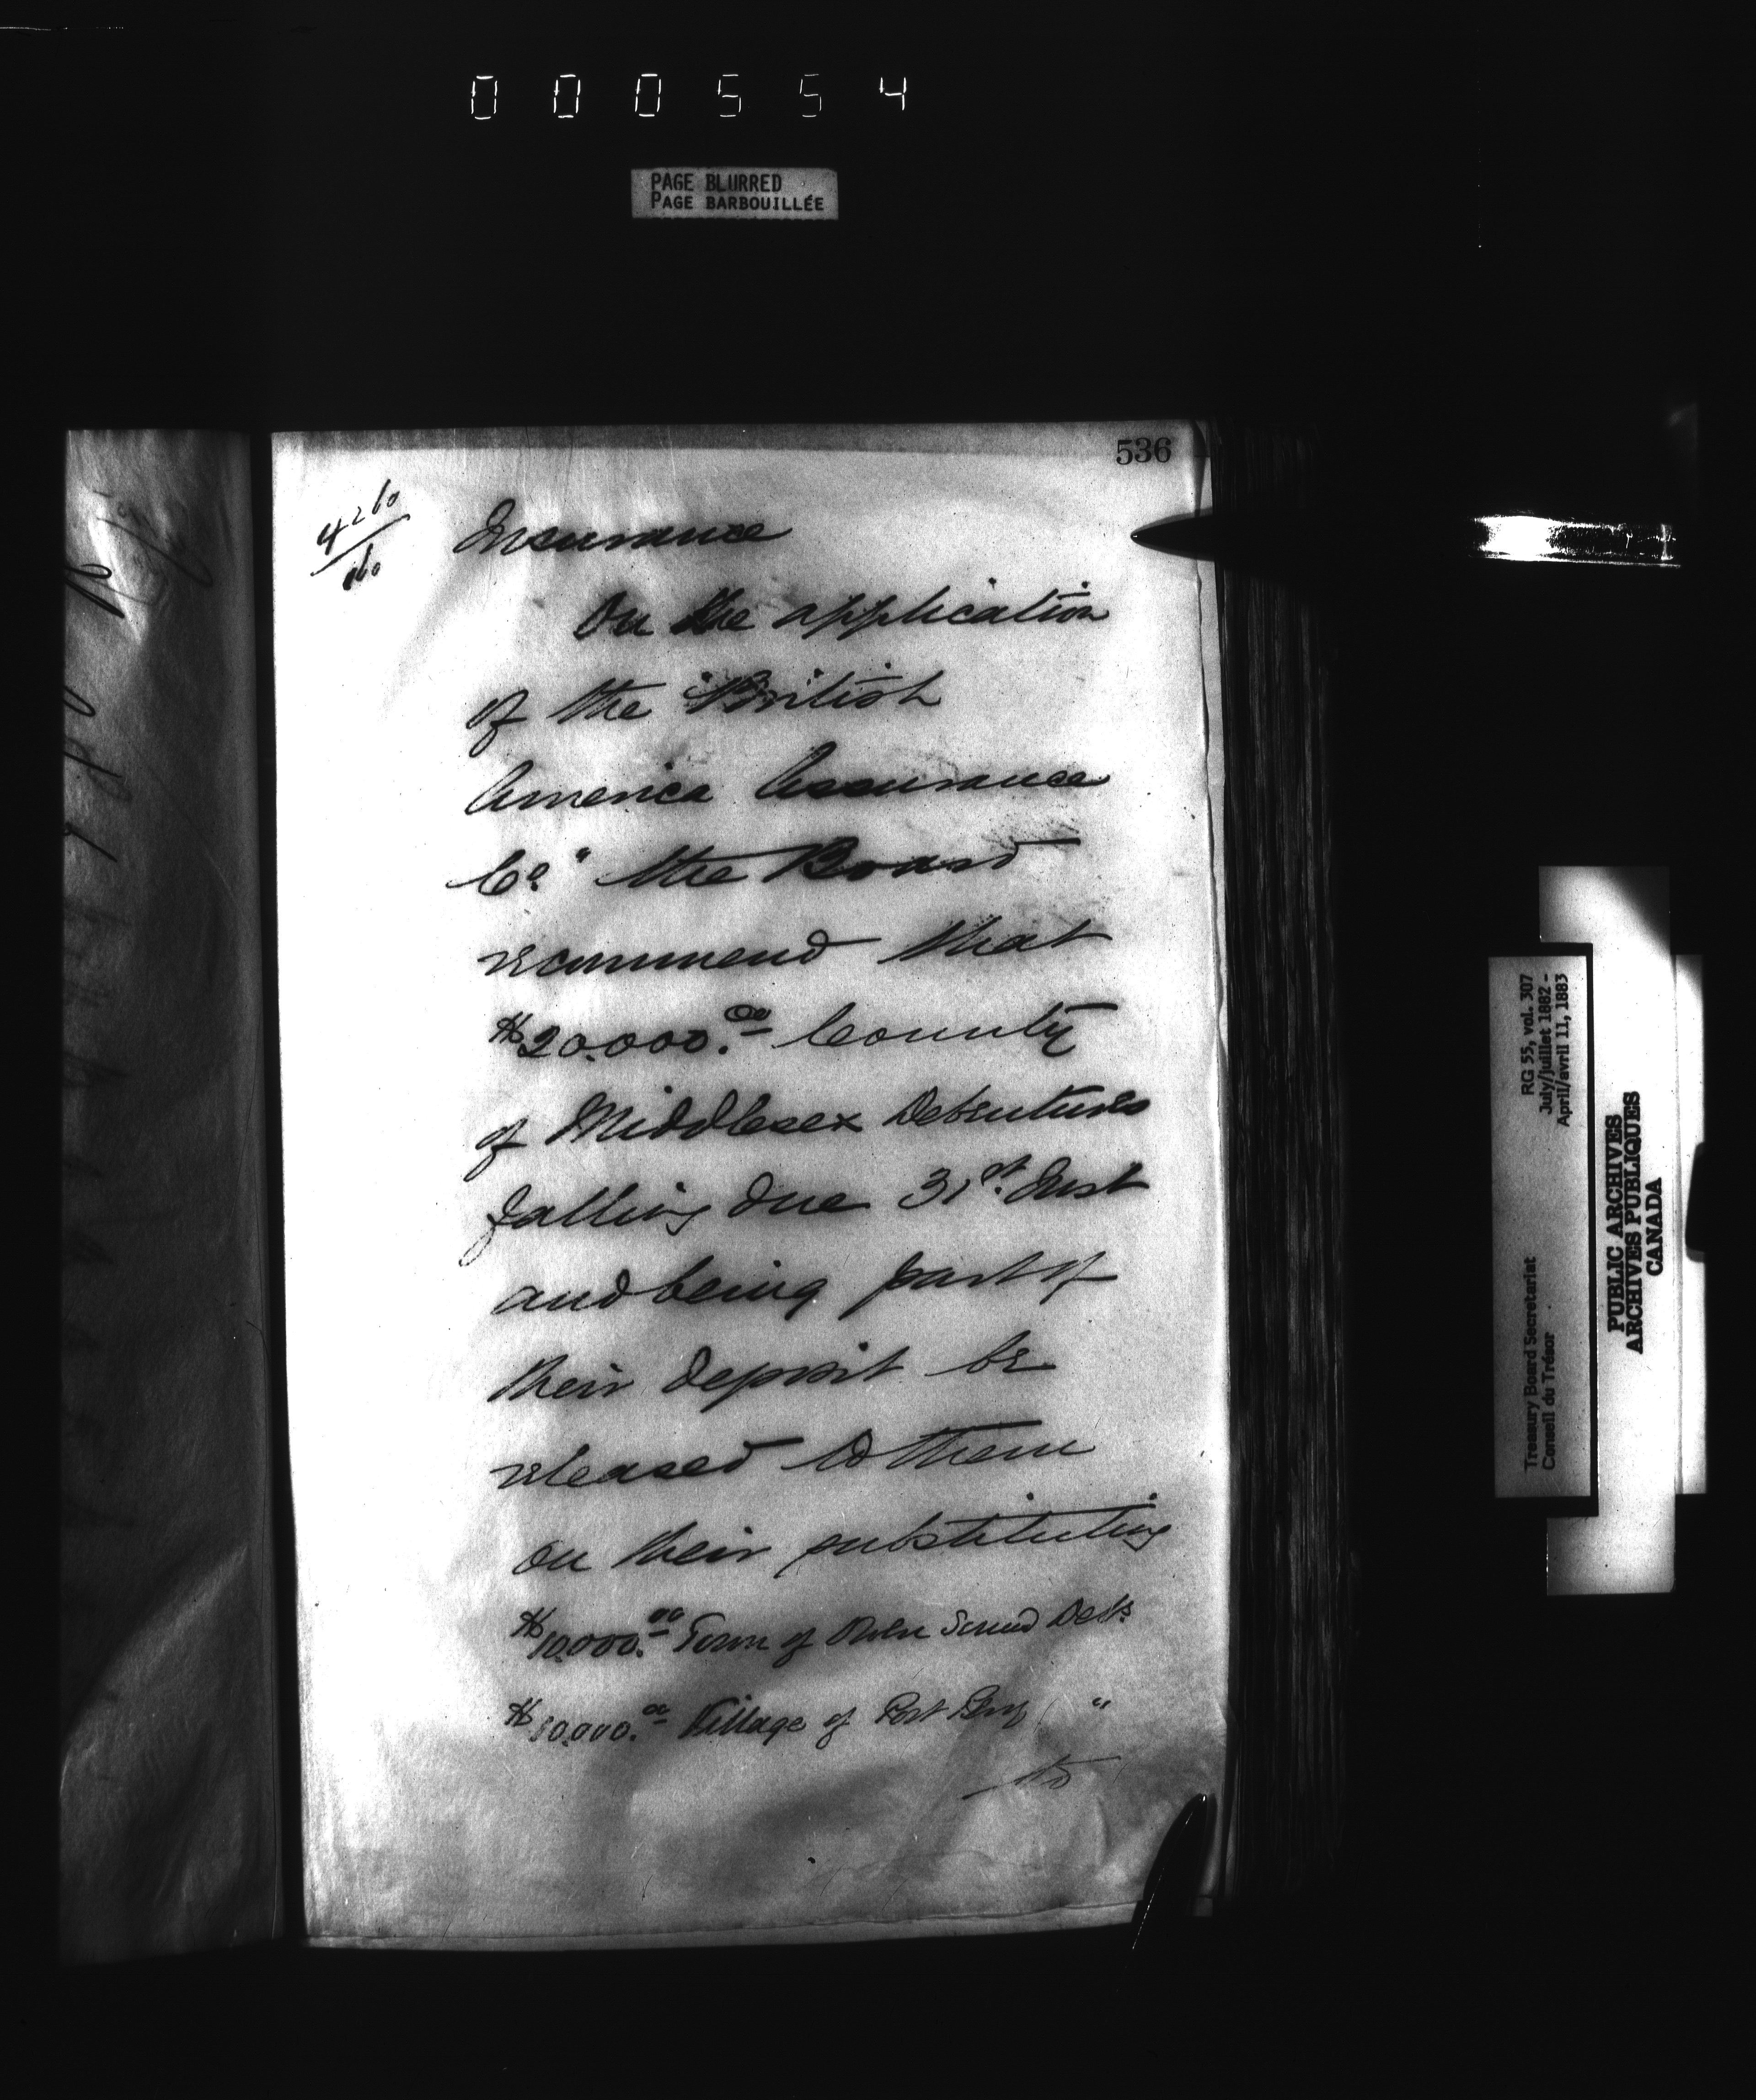 000554
PAGE BLURRED
PAGE BARBOUILLÉE
536
4260
Insurance
On the application
of the "British
America Assurance
Co." the Board
recommend that
$20.000.00 County
of Middlesex Debentures
falling due 31st. Inst
and being part of
their deposit be
released to them
on their substituting
$10.000.00 Town of Owen Sound Debs
$10.000.00 Village of Port Perry "
RG 55, vol. 307
July/juillet 1882 -
April/avril 11, 1883
Treasury Board Secretariat
Conseil du Trésor
PUBLIC ARCHIVES
ARCHIVES PUBLIQUES
CANADA